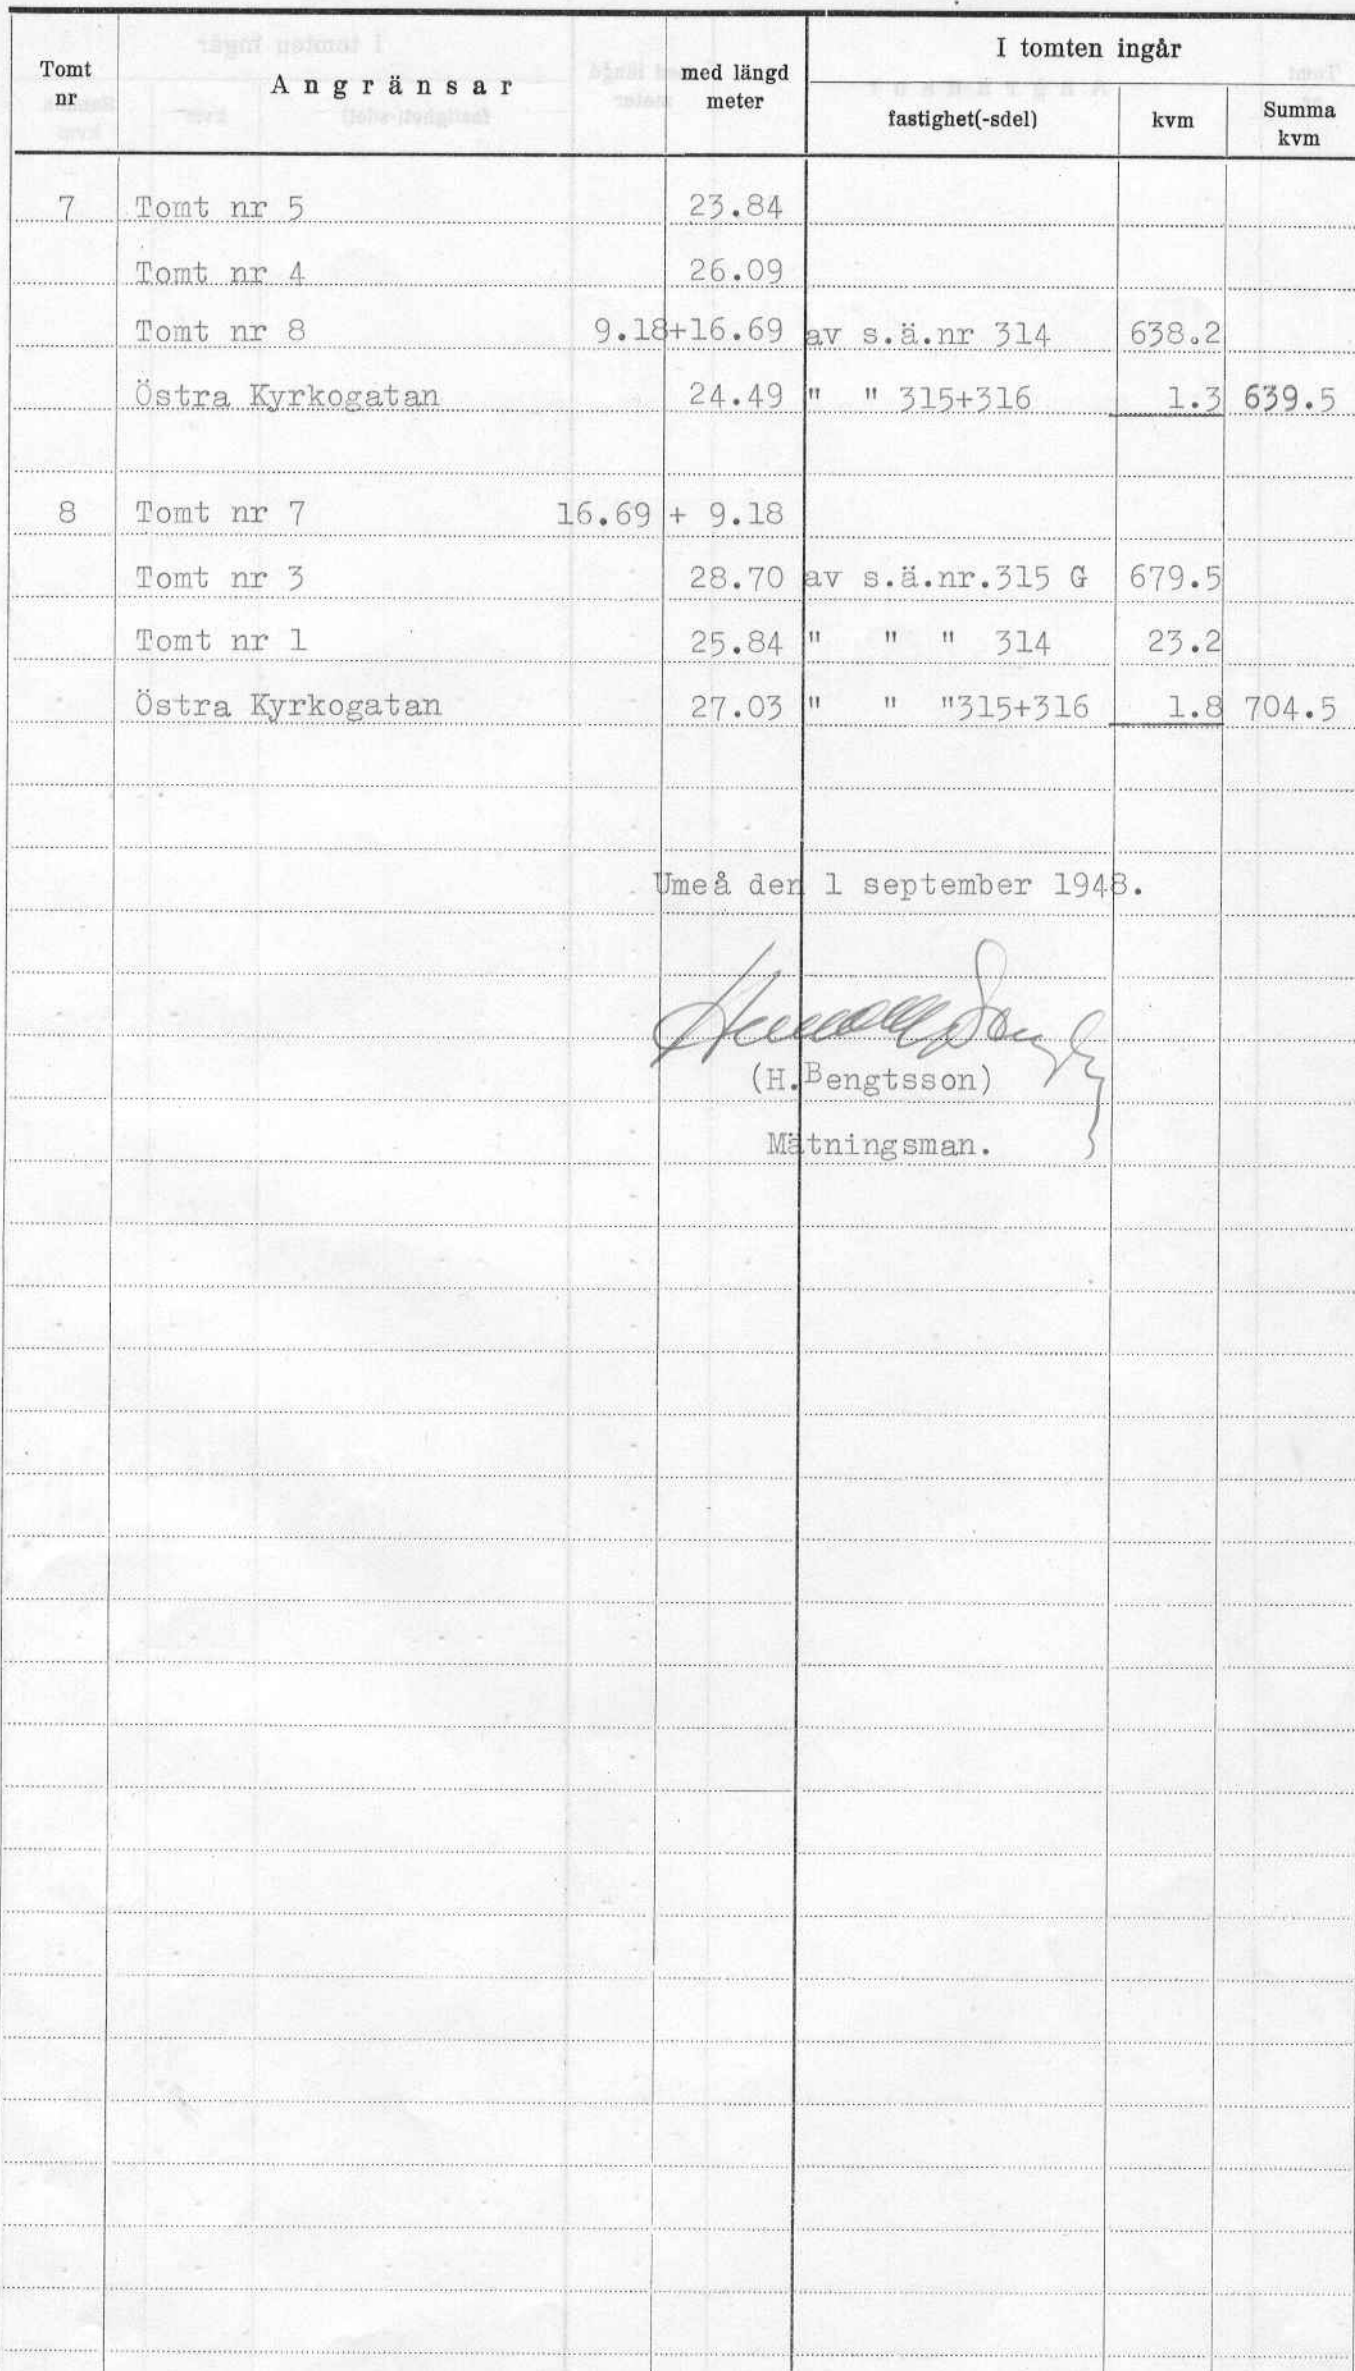 Tomt nr Angränsar med längd meter I tomten ingår
fastighet(-sdel) kvm Summa kvm
7 Tomt nr 5 23.84
Tomt nr 4 26.09
Tomt nr 8 9.18+16.69 av s.ä.nr 314 638.2
Östra Kyrkogatan 24.49 " " 315+316 1.3 639.5
8 Tomt nr 7 16.69 + 9.18
Tomt nr 3 28.70 av s.ä.nr.315 G 679.5
Tomt nr 1 25.84 " " " 314 23.2
Östra Kyrkogatan 27.03 " " "315+316 1.8 704.5
Umeå den 1 september 1948.
(H.Bengtsson)
Mätningsman.